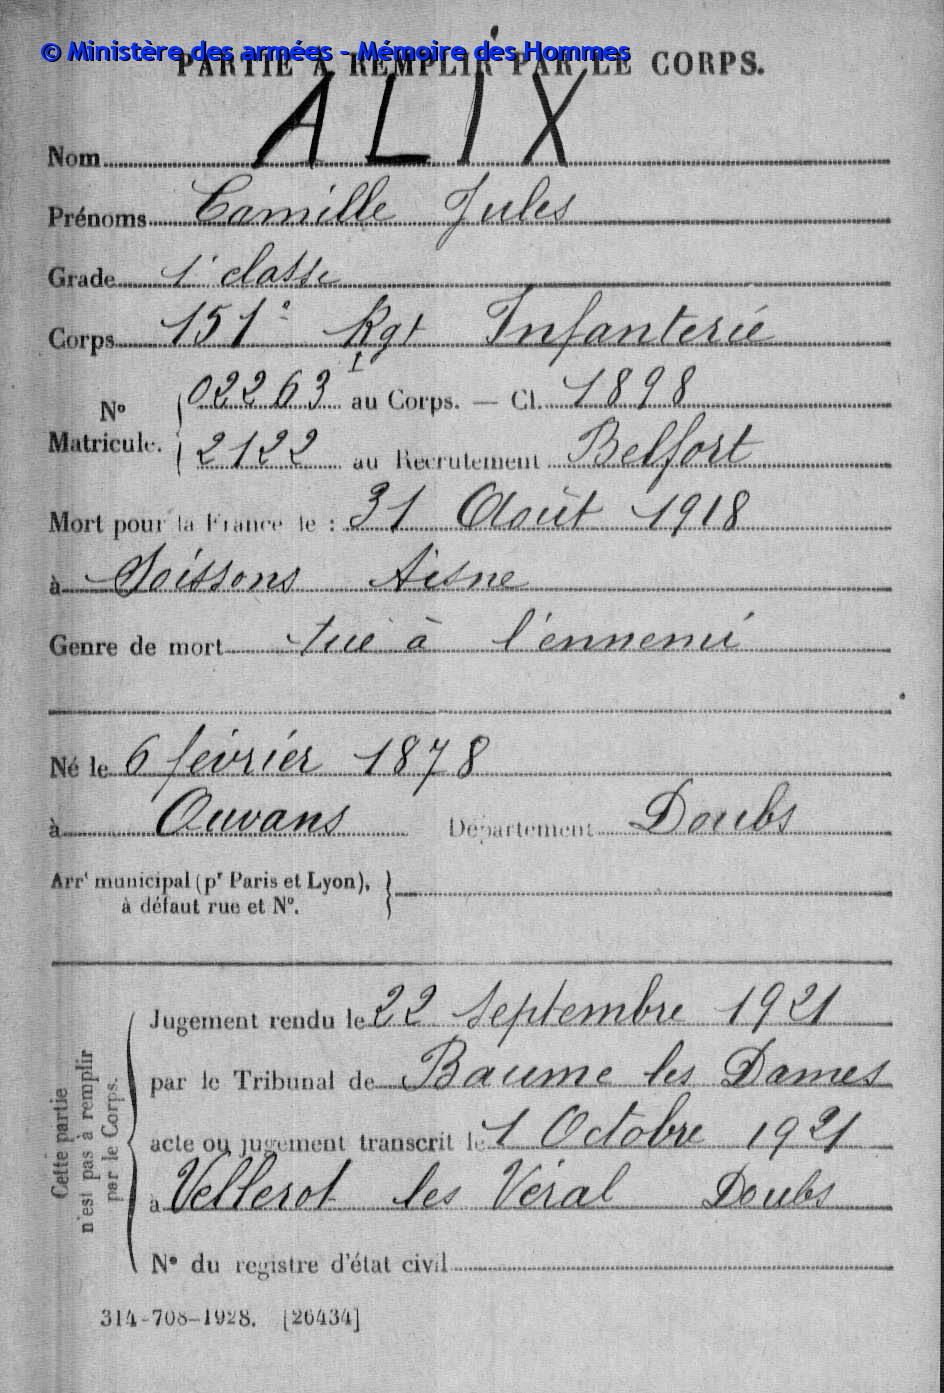 © Ministère des armées - Mémoire des Hommes
PARTIE À REMPLIR PAR LE CORPS.
Nom ALIX
Prénoms Camille Jules
Grade 1e classe
Corps 151e Rgt Infanterie
N° Matricule. 02263 au Corps. — Cl. 1898
2122 au Recrutement Belfort
Mort pour la France le : 31 Août 1918
à Soissons Aisne
Genre de mort tué à l'ennemi
Né le 6 février 1878
à Ouvans Département Doubs
Arrt municipal (pr Paris et Lyon),
à défaut rue et N°.
Cette partie
n'est pas à remplir
par le Corps.
Jugement rendu le 22 Septembre 1921
par le Tribunal de Baume les Dames
acte ou jugement transcrit le 1 Octobre 1921
à Vellerot les Véral Doubs
N° du registre d'état civil
314-708-1928. [26434]